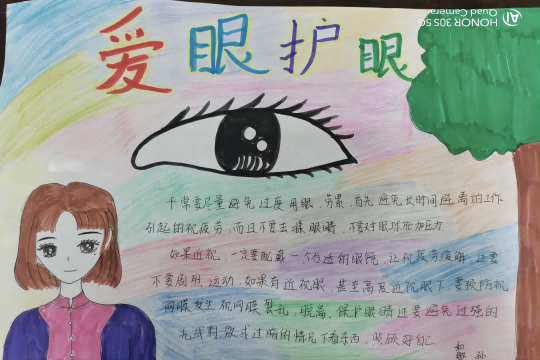 爱眼护眼
HONOR 30S 5G
Quad Camera
AI
平常要尽量避免过度用眼，劳累，首先避免长时间近距离的工作
引起的视疲劳，而且不要去揉眼睛，不要对眼球施加压力
如果近视，一定要配戴一个合适的眼镜，让视疲劳缓解，还要
不要剧烈运动，如果有近视眼，甚至高度近视眼下，要预防视
网膜发生视网膜裂孔，脱离，保护眼睛还要避免过强的
光线刺激或过暗的情况下看东西，照顾好自己